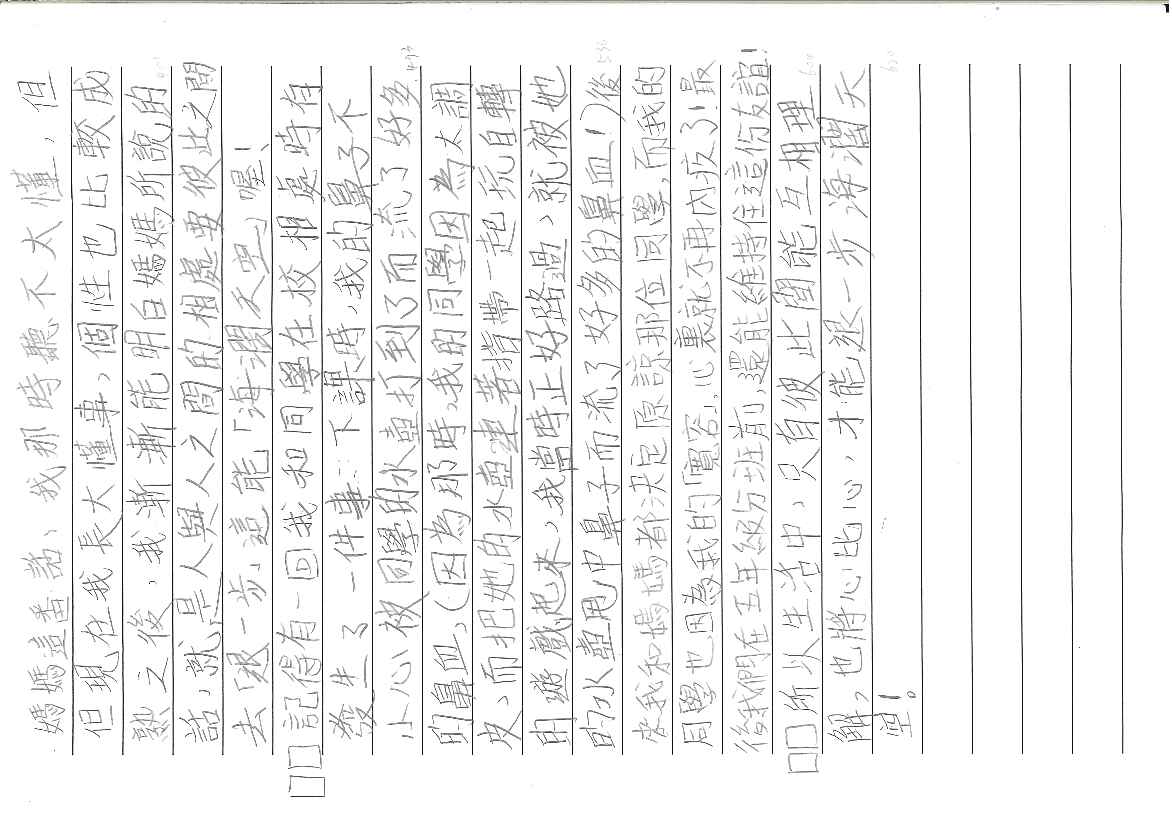 媽媽這番話，我那時聽不太懂，但
但現在我長大懂事，個性也比較成
熟之後，我漸漸能明白媽媽所說的
話，就是人與人之間的相處要彼此之間
去「退一步，這能「海濶天空」喔！
記得有一回我和同學在校相處時存
發生了一件事：下課時，我的鼻子不
小心被同學的水壺打到了而流了好多
的鼻血，（因為那時，我的同學因為太調
皮，而把她的水壺連著揹帶一起玩自轉
的遊戲起來，我當時正好路過，就被她
的水壺甩中鼻子而流了好多的鼻血！）後
來我和媽媽都決定原諒那位同學，而我的
同學也因為我的「寬容」，心裏就不再內疚了！最
後我們在五年級分班前，還能維持住這份友誼！
所以生活中，只有彼此間能互相理
解，也將心比心，才能退一步海濶天
空！。